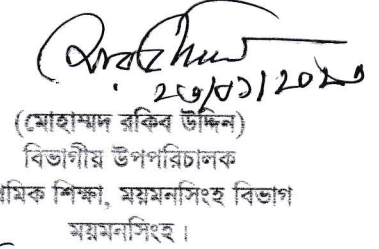 (মোহাম্মদ রকিব উদ্দিন)
বিভাগীয় উপপরিচালক
থমিক শিক্ষা, ময়মনসিংহ বিভাগ
ময়মনসিংহ।